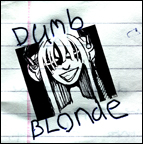 Dumb
BLonde